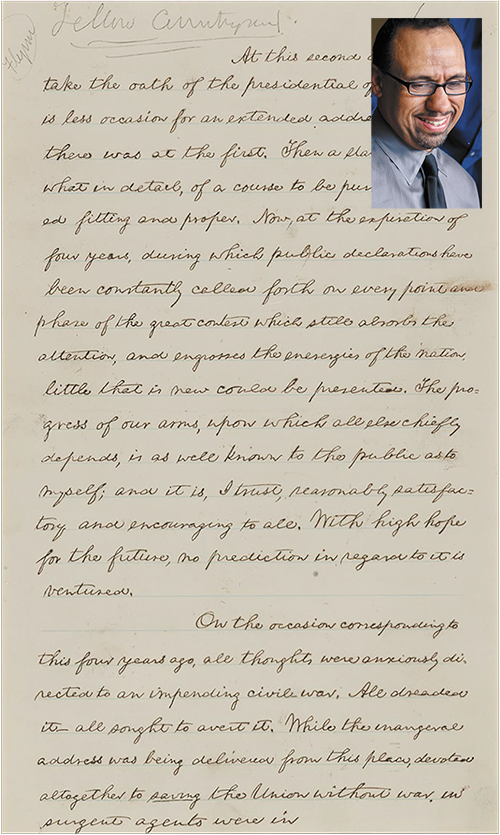 Fellow Countrymen
At this second
take the oath of the presidential of
is less occasion for an extended addre
there was at the first. Then a sta
what in detail, of a course to be pur
ed fitting and proper. Now, at the expiration of
four years, during which public declarations have
been constantly called forth on every point and
phase of the great contest which still absorbs the
attention, and engrosses the enerergies of the nation,
little that is new could be presented. The pro=
gress of our arms, upon which all else chiefly
depends, is as well known to the public as to
myself; and it is, I trust, reasonably satisfac=
tory and encouraging to all. With high hope
for the future, no prediction in regard to it is
ventured.
On the occasion corresponding to
this four years ago, all thoughts were anxiously di-
rected to an impending civil war. All dreaded
it— all sought to avert it. While the inaugeral
address was being delivered from this place, devoted
altogether to saving the Union without war, in
surgent agents were in